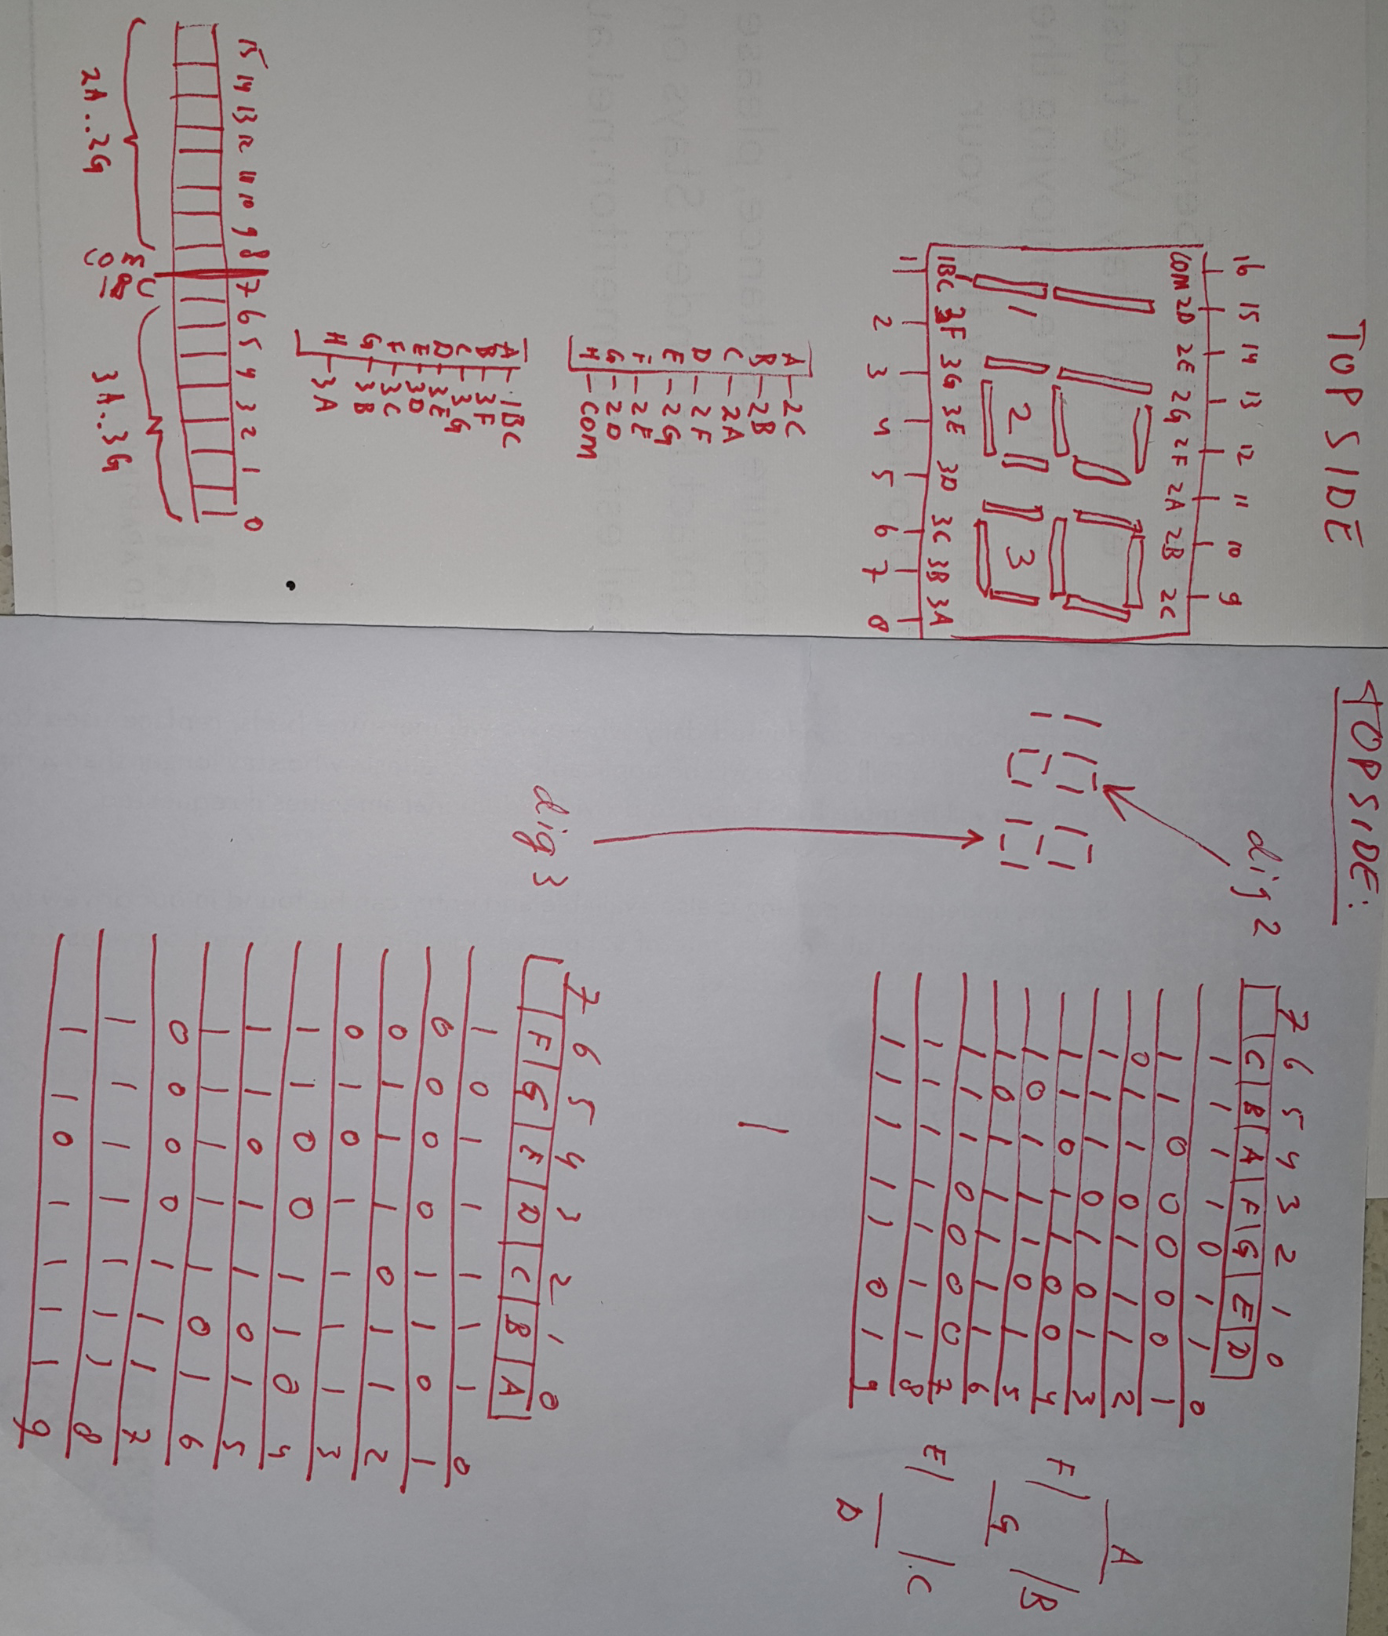 TOP SIDE
16 15 14 13 12 11 10 9
COM 2D 2E 2G 2F 2A 2B 2C
1 2 3
1BC 3F 3G 3E 3D 3C 3B 3A
1 2 3 4 5 6 7 8
A - 2C
B - 2B
C - 2A
D - 2F
E - 2G
F - 2E
G - 2D
H - COM
A - 1BC
B - 3F
C - 3G
D - 3E
E - 3D
F - 3C
G - 3B
H - 3A
15 14 13 12 11 10 9 8 7 6 5 4 3 2 1 0
2A..2G 3A..3G
TOPSIDE:
dig 2
7 6 5 4 3 2 1 0
C B A F G E D
1 1 1 1 0 1 1 0
1 1 0 0 0 0 0 1
0 1 1 0 1 1 1 2
1 1 1 0 1 0 1 3
1 1 0 1 1 0 0 4
1 0 1 1 1 0 1 5
1 0 1 1 1 1 1 6
1 1 1 0 0 0 0 7
1 1 1 1 1 1 1 8
1 1 1 1 1 0 1 9
A
F B
G
E C
D
dig 3
7 6 5 4 3 2 1 0
F G E D C B A
1 0 1 1 1 1 1 0
0 0 0 0 1 1 0 1
0 1 1 1 0 1 1 2
0 1 0 1 1 1 1 3
1 1 0 0 1 1 0 4
1 1 0 1 1 0 1 5
1 1 1 1 1 0 1 6
0 0 0 0 1 1 1 7
1 1 1 1 1 1 1 8
1 1 0 1 1 1 1 9